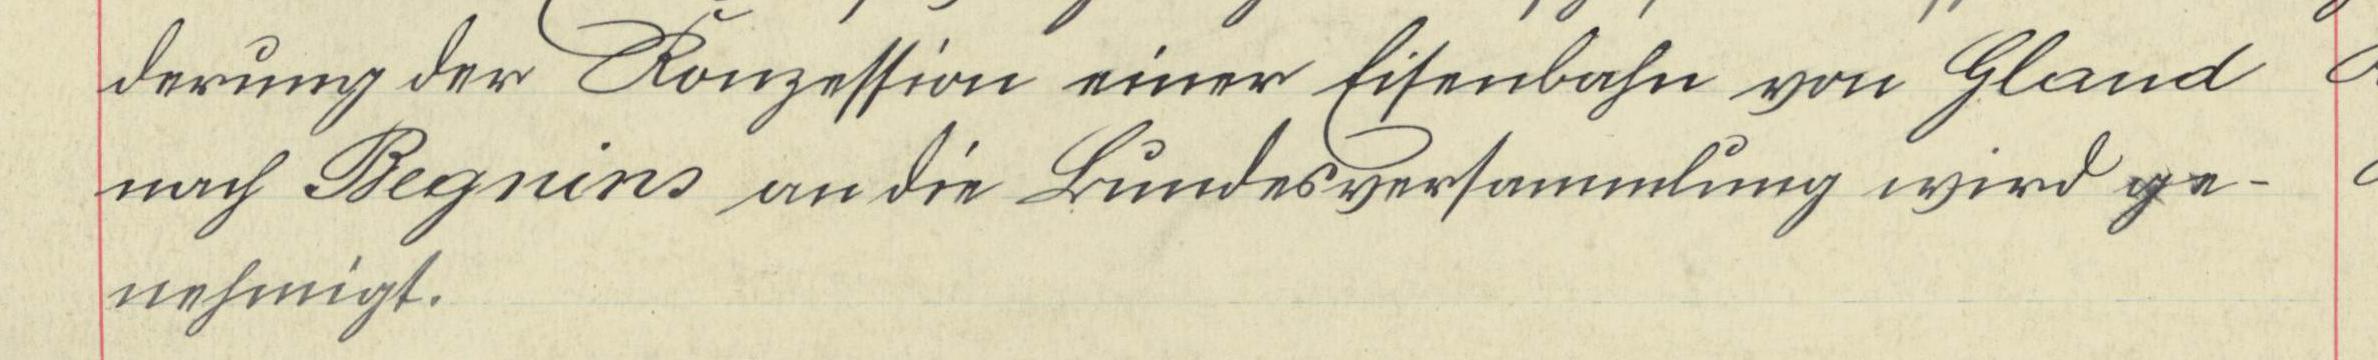 derung der Konzession einer Eisenbahn von Gland
nach Begnins an die Bundesversammlung wird ge-
nehmigt.